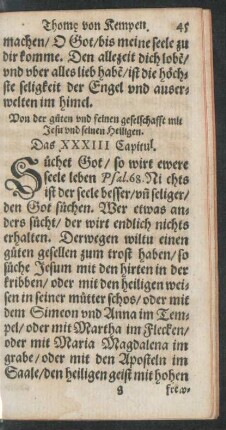 Thome von Kempen. 45
machen/ O Got/ bis meine seele zu
dir komme. Den allezeit dich lobẽ/
vnd vber alles lieb habẽ/ ist die höch-
ste seligkeit der Engel vnd auser-
welten im himel.
Von der güten vnd feinen geselschafft mit
Jesu vnd seinen Heiligen.
Das XXXIII Capitul.
Süchet Got/ so wirt ewere
seele leben Psal. 68. Nichts
ist der seele besser/ vñ seliger/
den Got süchen. Wer etwas an-
ders sücht/ der wirt endlich nichts
erhalten. Derwegen wiltu einen
güten gesellen zum trost haben/ so
süche Jesum mit den hirten in der
kribben/ oder mit den heiligen wei-
sen in seiner mütter schos/ oder mit
dem Simeon vnd Anna im Tem-
pel/ oder mit Martha im Flecken/
oder mit Maria Magdalena im
grabe/ oder mit den Aposteln im
Saale/ den heiligen geist mit hohen
g frew-